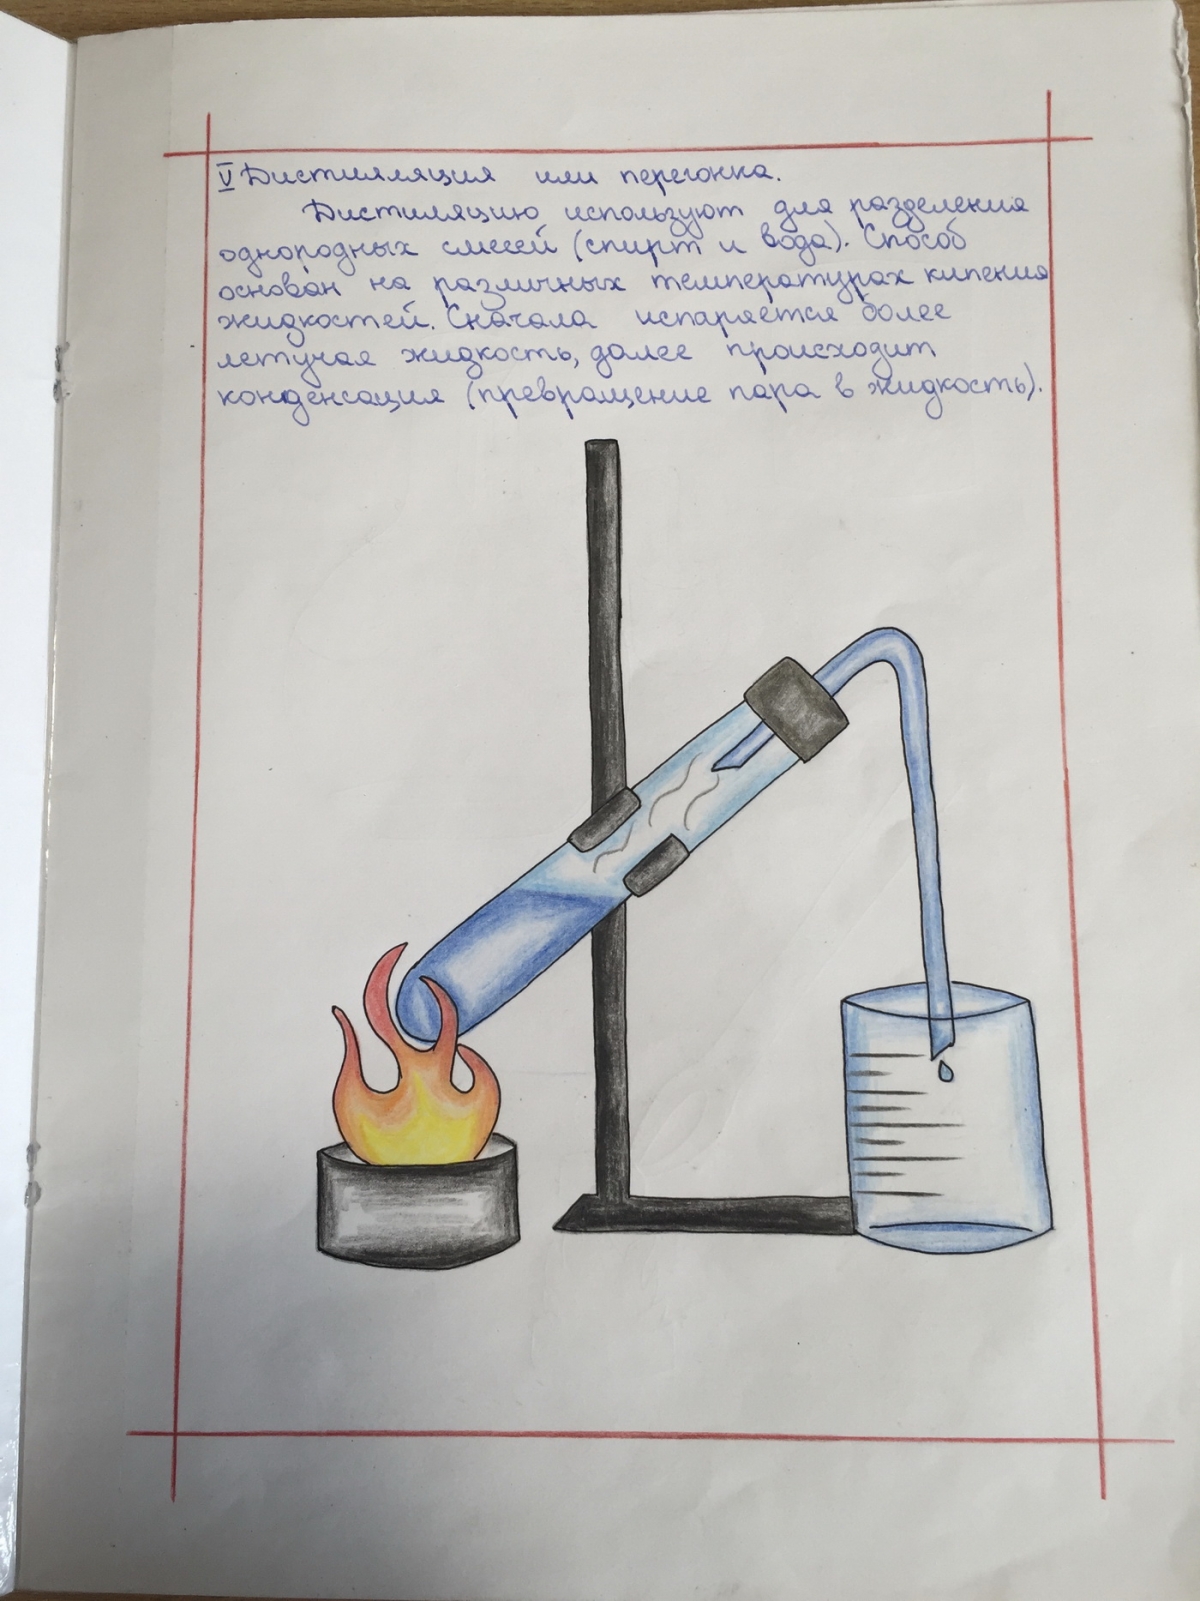 V Дистилляция или перегонка.
Дистиляцию используют для разделения
однородных смесей (спирт и вода). Способ
основан на различных температурах кипения
жидкостей. Сначала испаряется более
летучая жидкость, далее происходит
конденсация (превращение пара в жидкость).